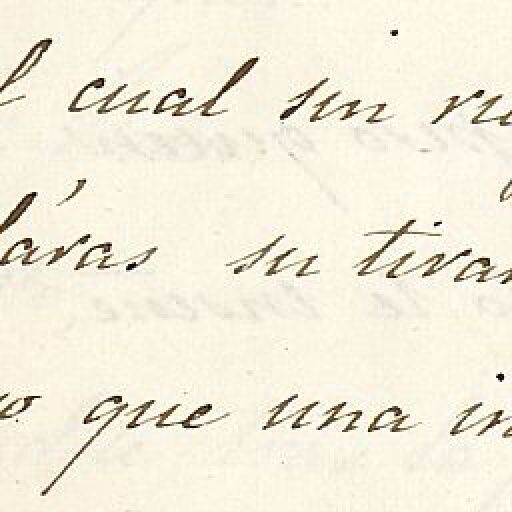 l cual sin ru
láras su tiran
o que una in